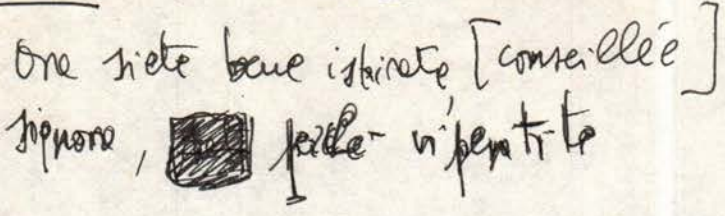 Ora siete bene ispirata, [conseillée]
signora, perché vi pentite